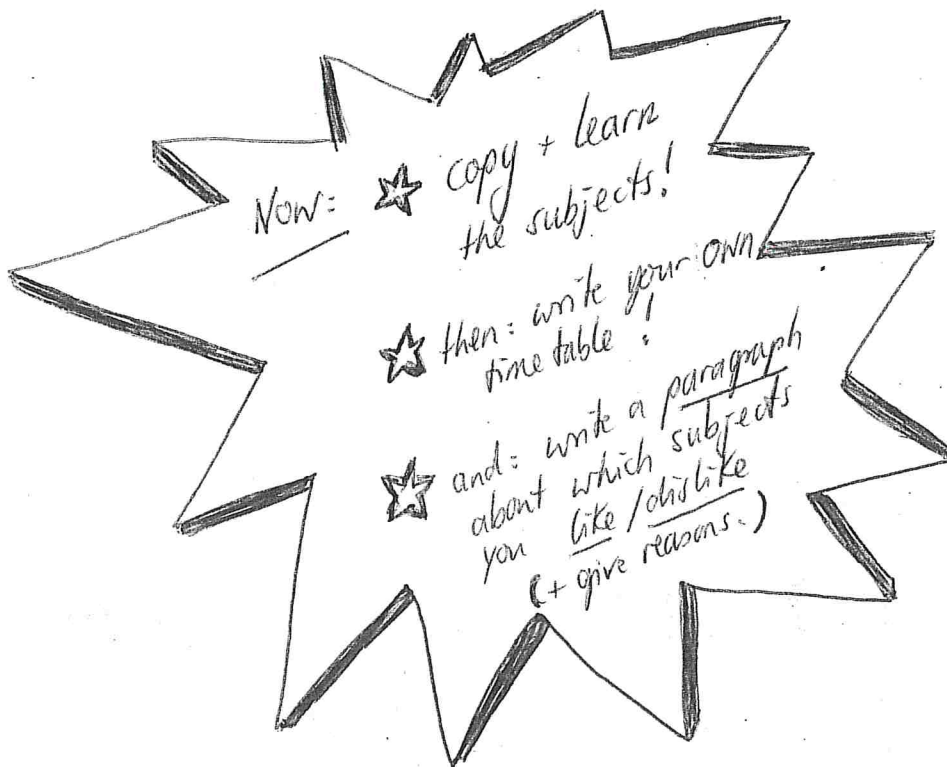 Now: copy + learn
the subjects!
then: write your own
timetable!
and: write a paragraph
about which subjects
you like/dislike
(+ give reasons.)